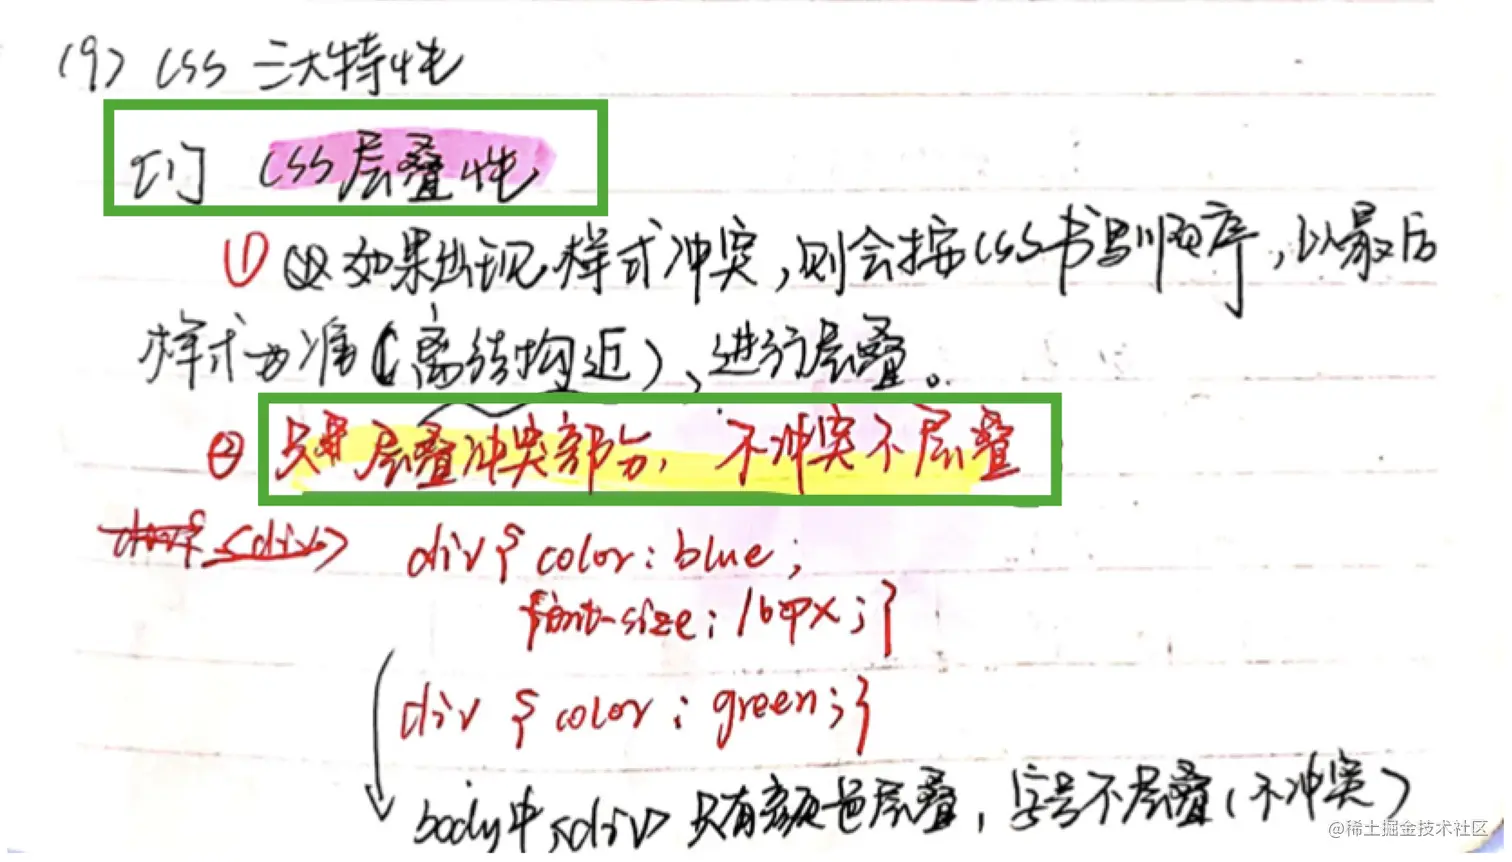 (9) CSS 三大特性
[1] CSS层叠性
① 如果出现样式冲突,则会按CSS书写顺序,以最后
样式为准(离结构近),进行层叠。
② 只层叠冲突部分,不冲突不层叠
<div> div{ color:blue;
font-size:16px;}
div { color : green;}
body中<div> 只有颜色层叠,字号不层叠(不冲突)
@稀土掘金技术社区